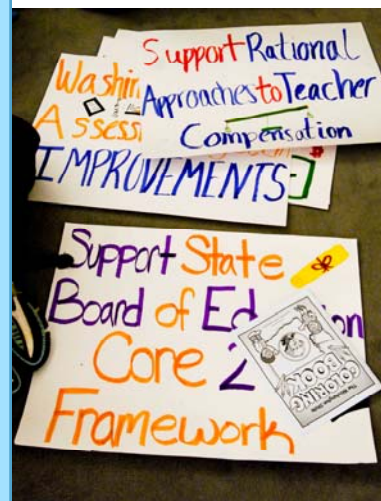 Support Rational
Approaches to Teacher
Compensation
Washin
Assess
IMPROVEMENTS
Support State
Board of Ed on
Core 2
Framework
COLORING
BOOK